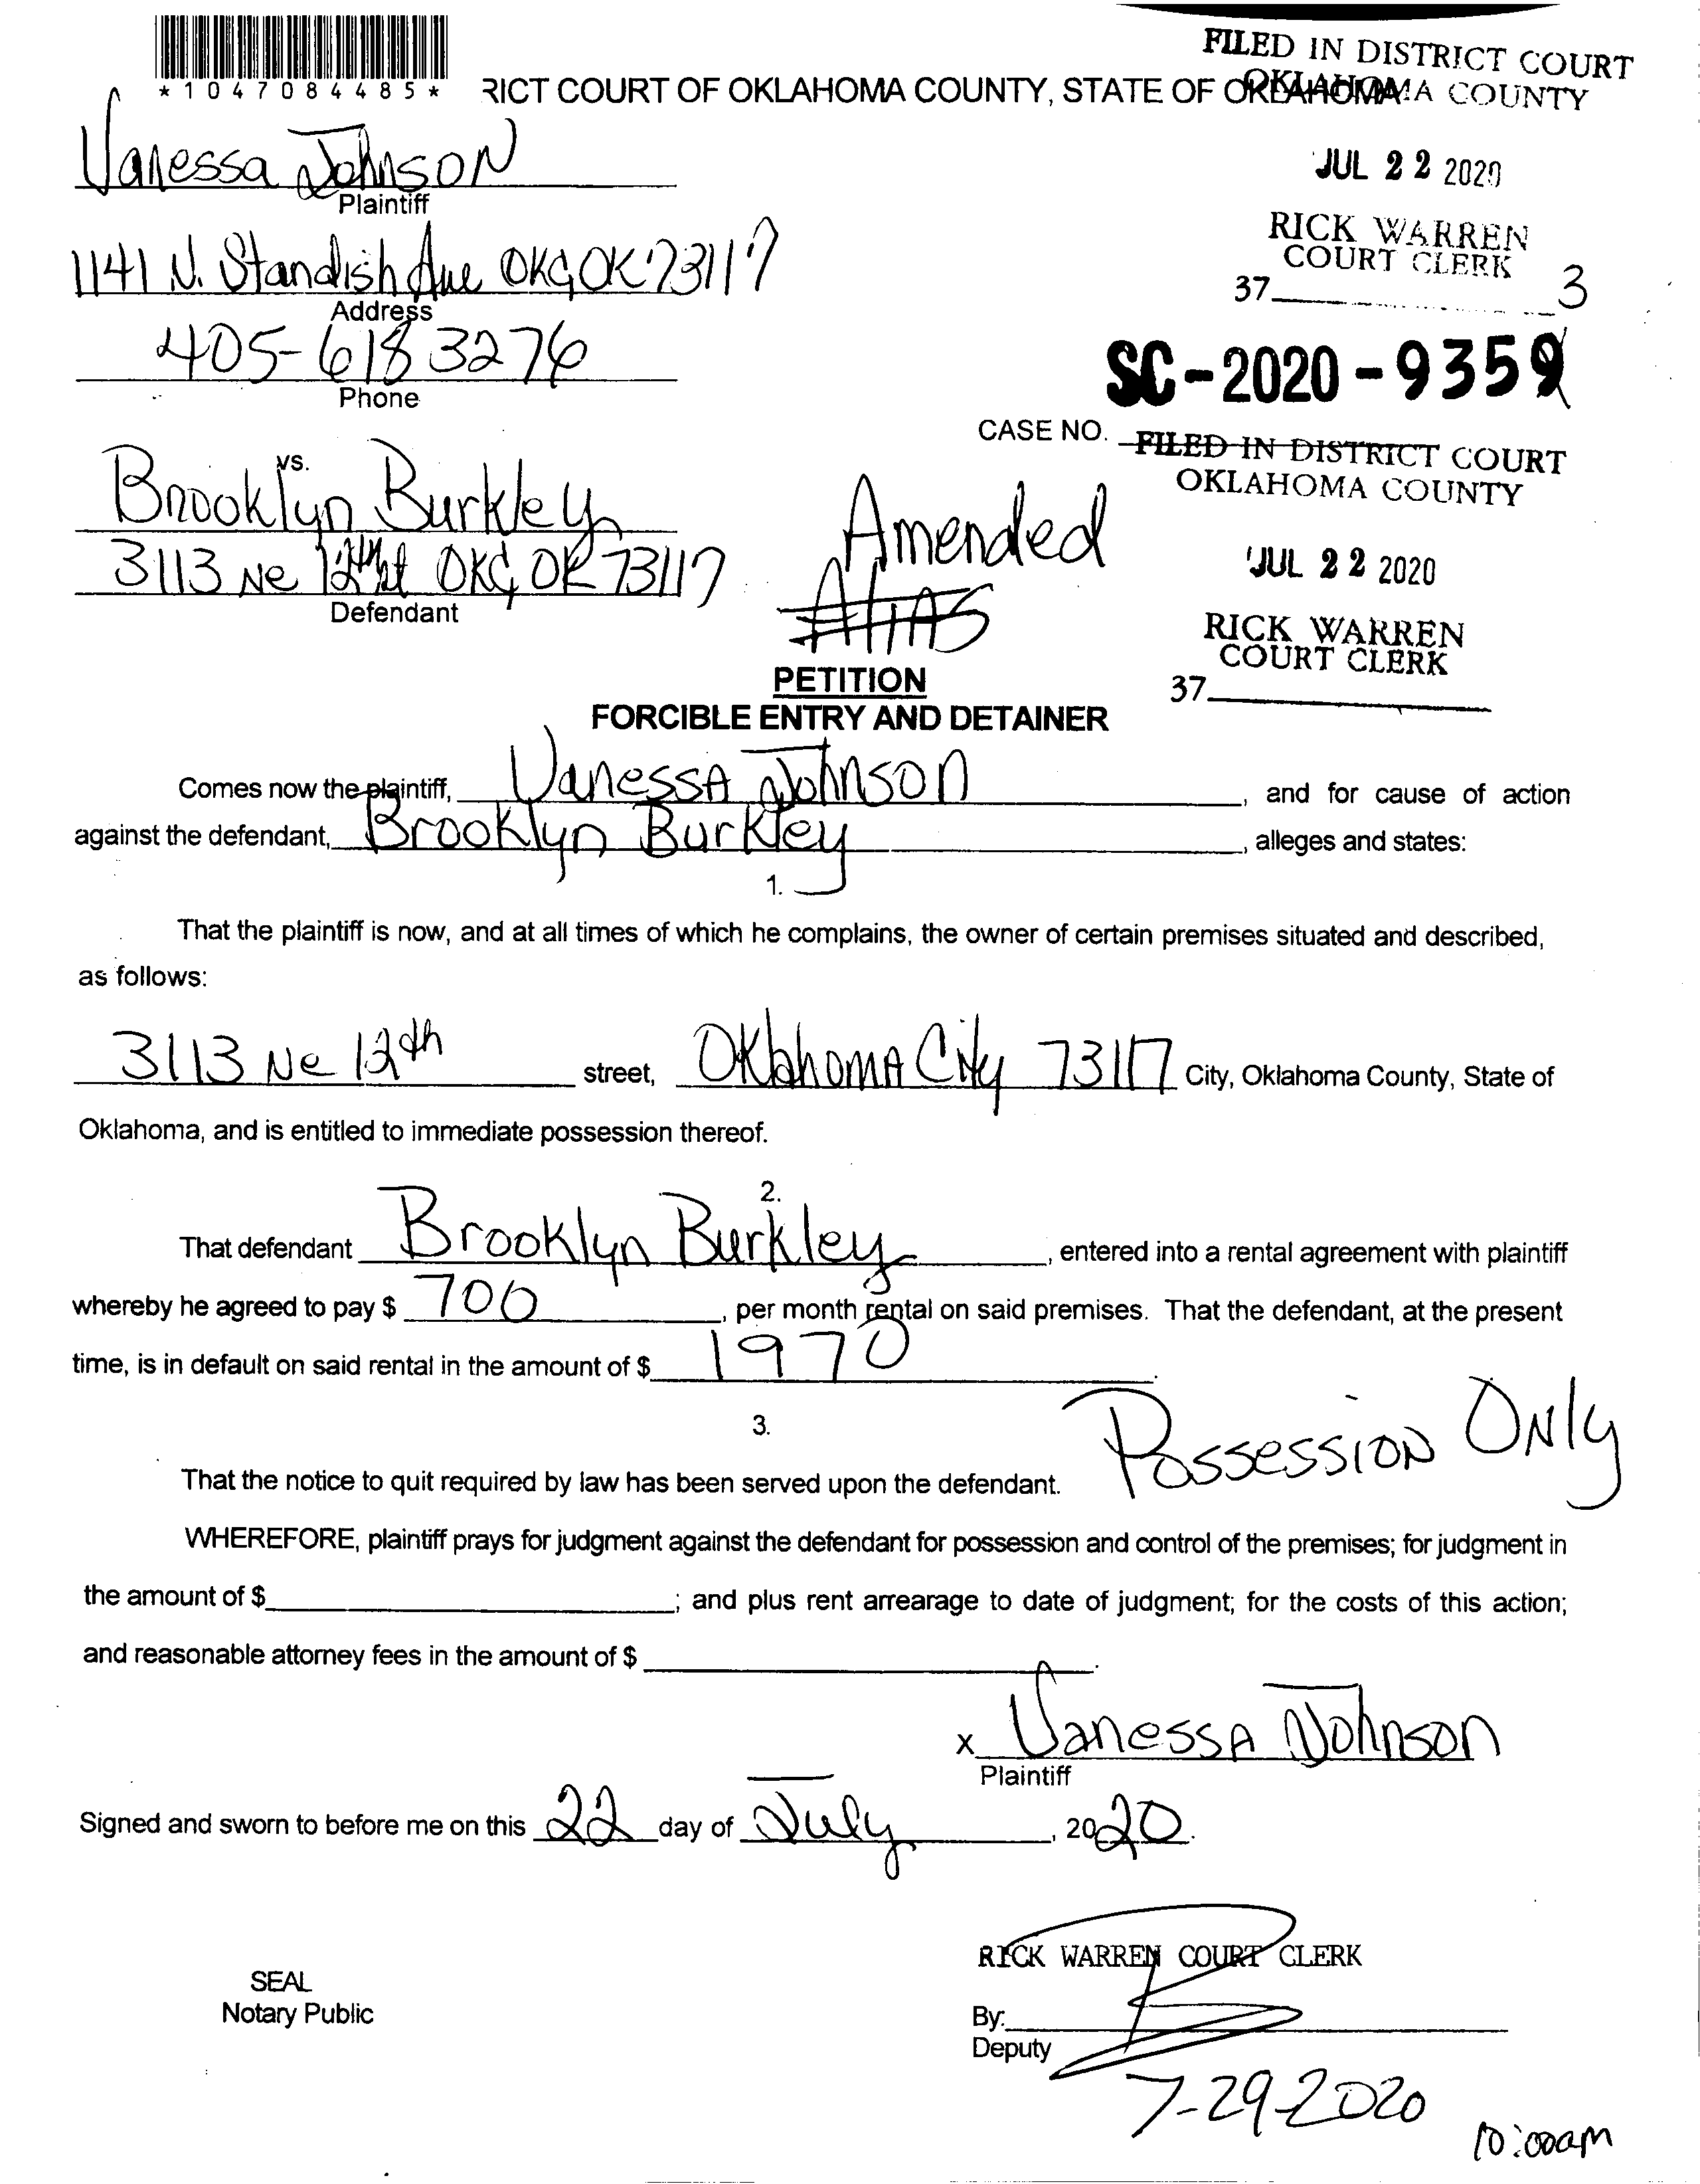 *1047084485*
RICT COURT OF OKLAHOMA COUNTY, STATE OF OKLAHOMA
FILED IN DISTRICT COURT
OKLAHOMA COUNTY
JUL 22 2020
RICK WARREN
COURT CLERK
37 3
Vanessa Johnson
Plaintiff
1141 N. Standish Ave OKC, OK 73117
Address
405-618 3276
Phone
SC-2020-9359
CASE NO.
vs.
Brooklyn Burkley
3113 Ne 12th st OKC, OK 73117
Defendant
FILED IN DISTRICT COURT
OKLAHOMA COUNTY
JUL 22 2020
RICK WARREN
COURT CLERK
37
Amended
Alias
PETITION
FORCIBLE ENTRY AND DETAINER
Comes now the plaintiff, Vanessa Johnson, and for cause of action
against the defendant, Brooklyn Burkley, alleges and states:
1.
That the plaintiff is now, and at all times of which he complains, the owner of certain premises situated and described,
as follows:
3113 Ne 12th street, Oklahoma City 73117 City, Oklahoma County, State of
Oklahoma, and is entitled to immediate possession thereof.
2.
That defendant Brooklyn Burkley, entered into a rental agreement with plaintiff
whereby he agreed to pay $ 700, per month rental on said premises. That the defendant, at the present
time, is in default on said rental in the amount of $ 1970.
3.
Possession Only
That the notice to quit required by law has been served upon the defendant.
WHEREFORE, plaintiff prays for judgment against the defendant for possession and control of the premises; for judgment in
the amount of $ ; and plus rent arrearage to date of judgment; for the costs of this action;
and reasonable attorney fees in the amount of $ .
x Vanessa Johnson
Plaintiff
Signed and sworn to before me on this 22 day of July, 2020.
RICK WARREN COURT CLERK
SEAL
Notary Public
By:
Deputy
7-29-2020
10:00am